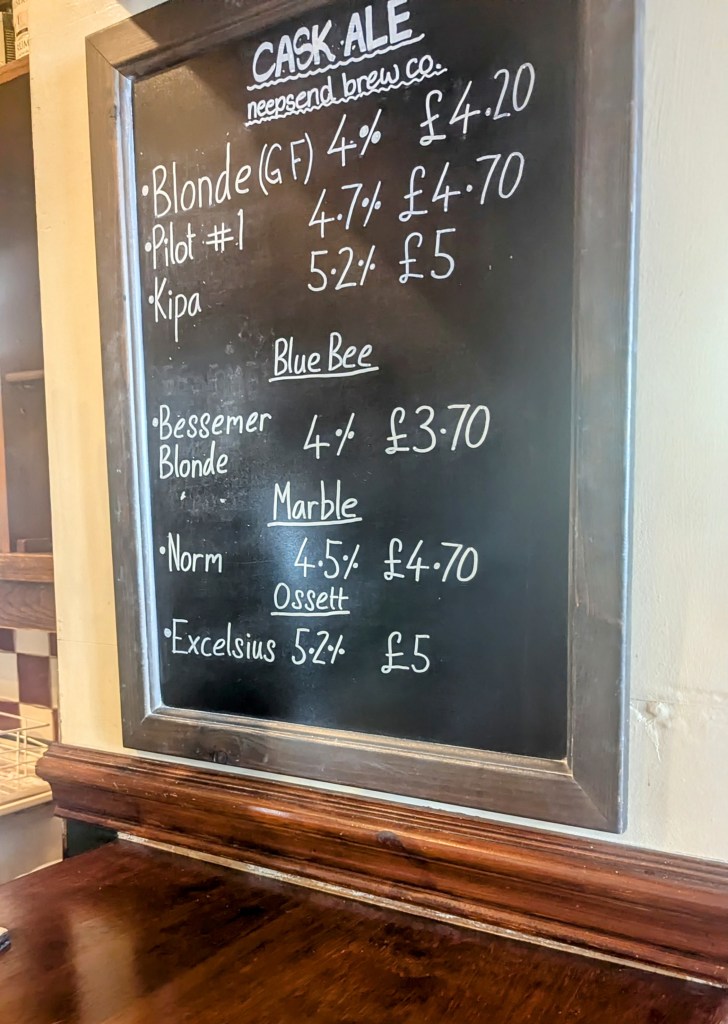 CASK ALE
neepsend brew co.
•Blonde (GF) 4% £4.20
•Pilot #1 4.7% £4.70
•Kipa 5.2% £5
Blue Bee
•Bessemer
Blonde 4% £3.70
Marble
•Norm 4.5% £4.70
Ossett
•Excelsius 5.2% £5